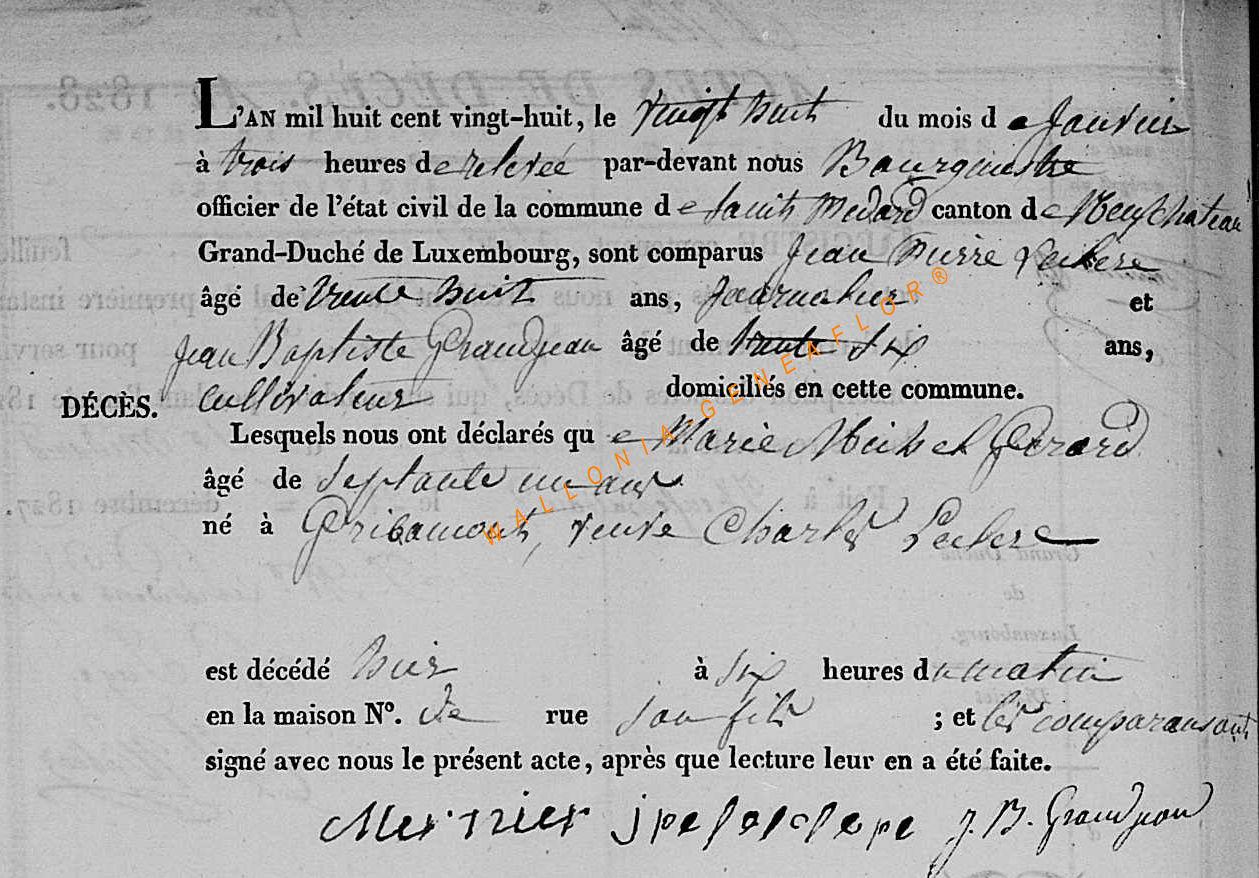 L'AN mil huit cent vingt-huit, le vingt huit du mois de Janvier
à trois heures de relevée par-devant nous Bourgmestre
officier de l'état civil de la commune de Saint Medard canton de Neufchateau
Grand-Duché de Luxembourg, sont comparus Jean Pierre Leclere
âgé de trente huit ans, Journalier et
Jean Baptiste Grandjean âgé de trente six ans,
DÉCÈS. cultivateur domiciliés en cette commune.
Lesquels nous ont déclarés que Marie Michel Gerard
âgé de septante un ans
né à Gribamont, veuve Charles Leclere
est décédé hier à six heures du matin
en la maison N°. de rue son fils ; et les comparans ont
signé avec nous le présent acte, après que lecture leur en a été faite.
J. B. Grandjean
WALLONIA GENEAFLOR®